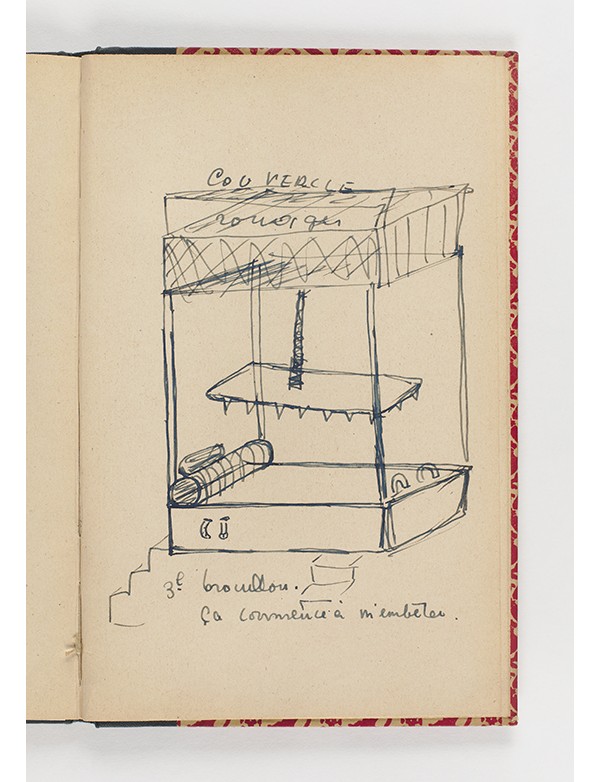 COUVERCLE
rouages
3e brouillon.
Ça commence à m'embêter.